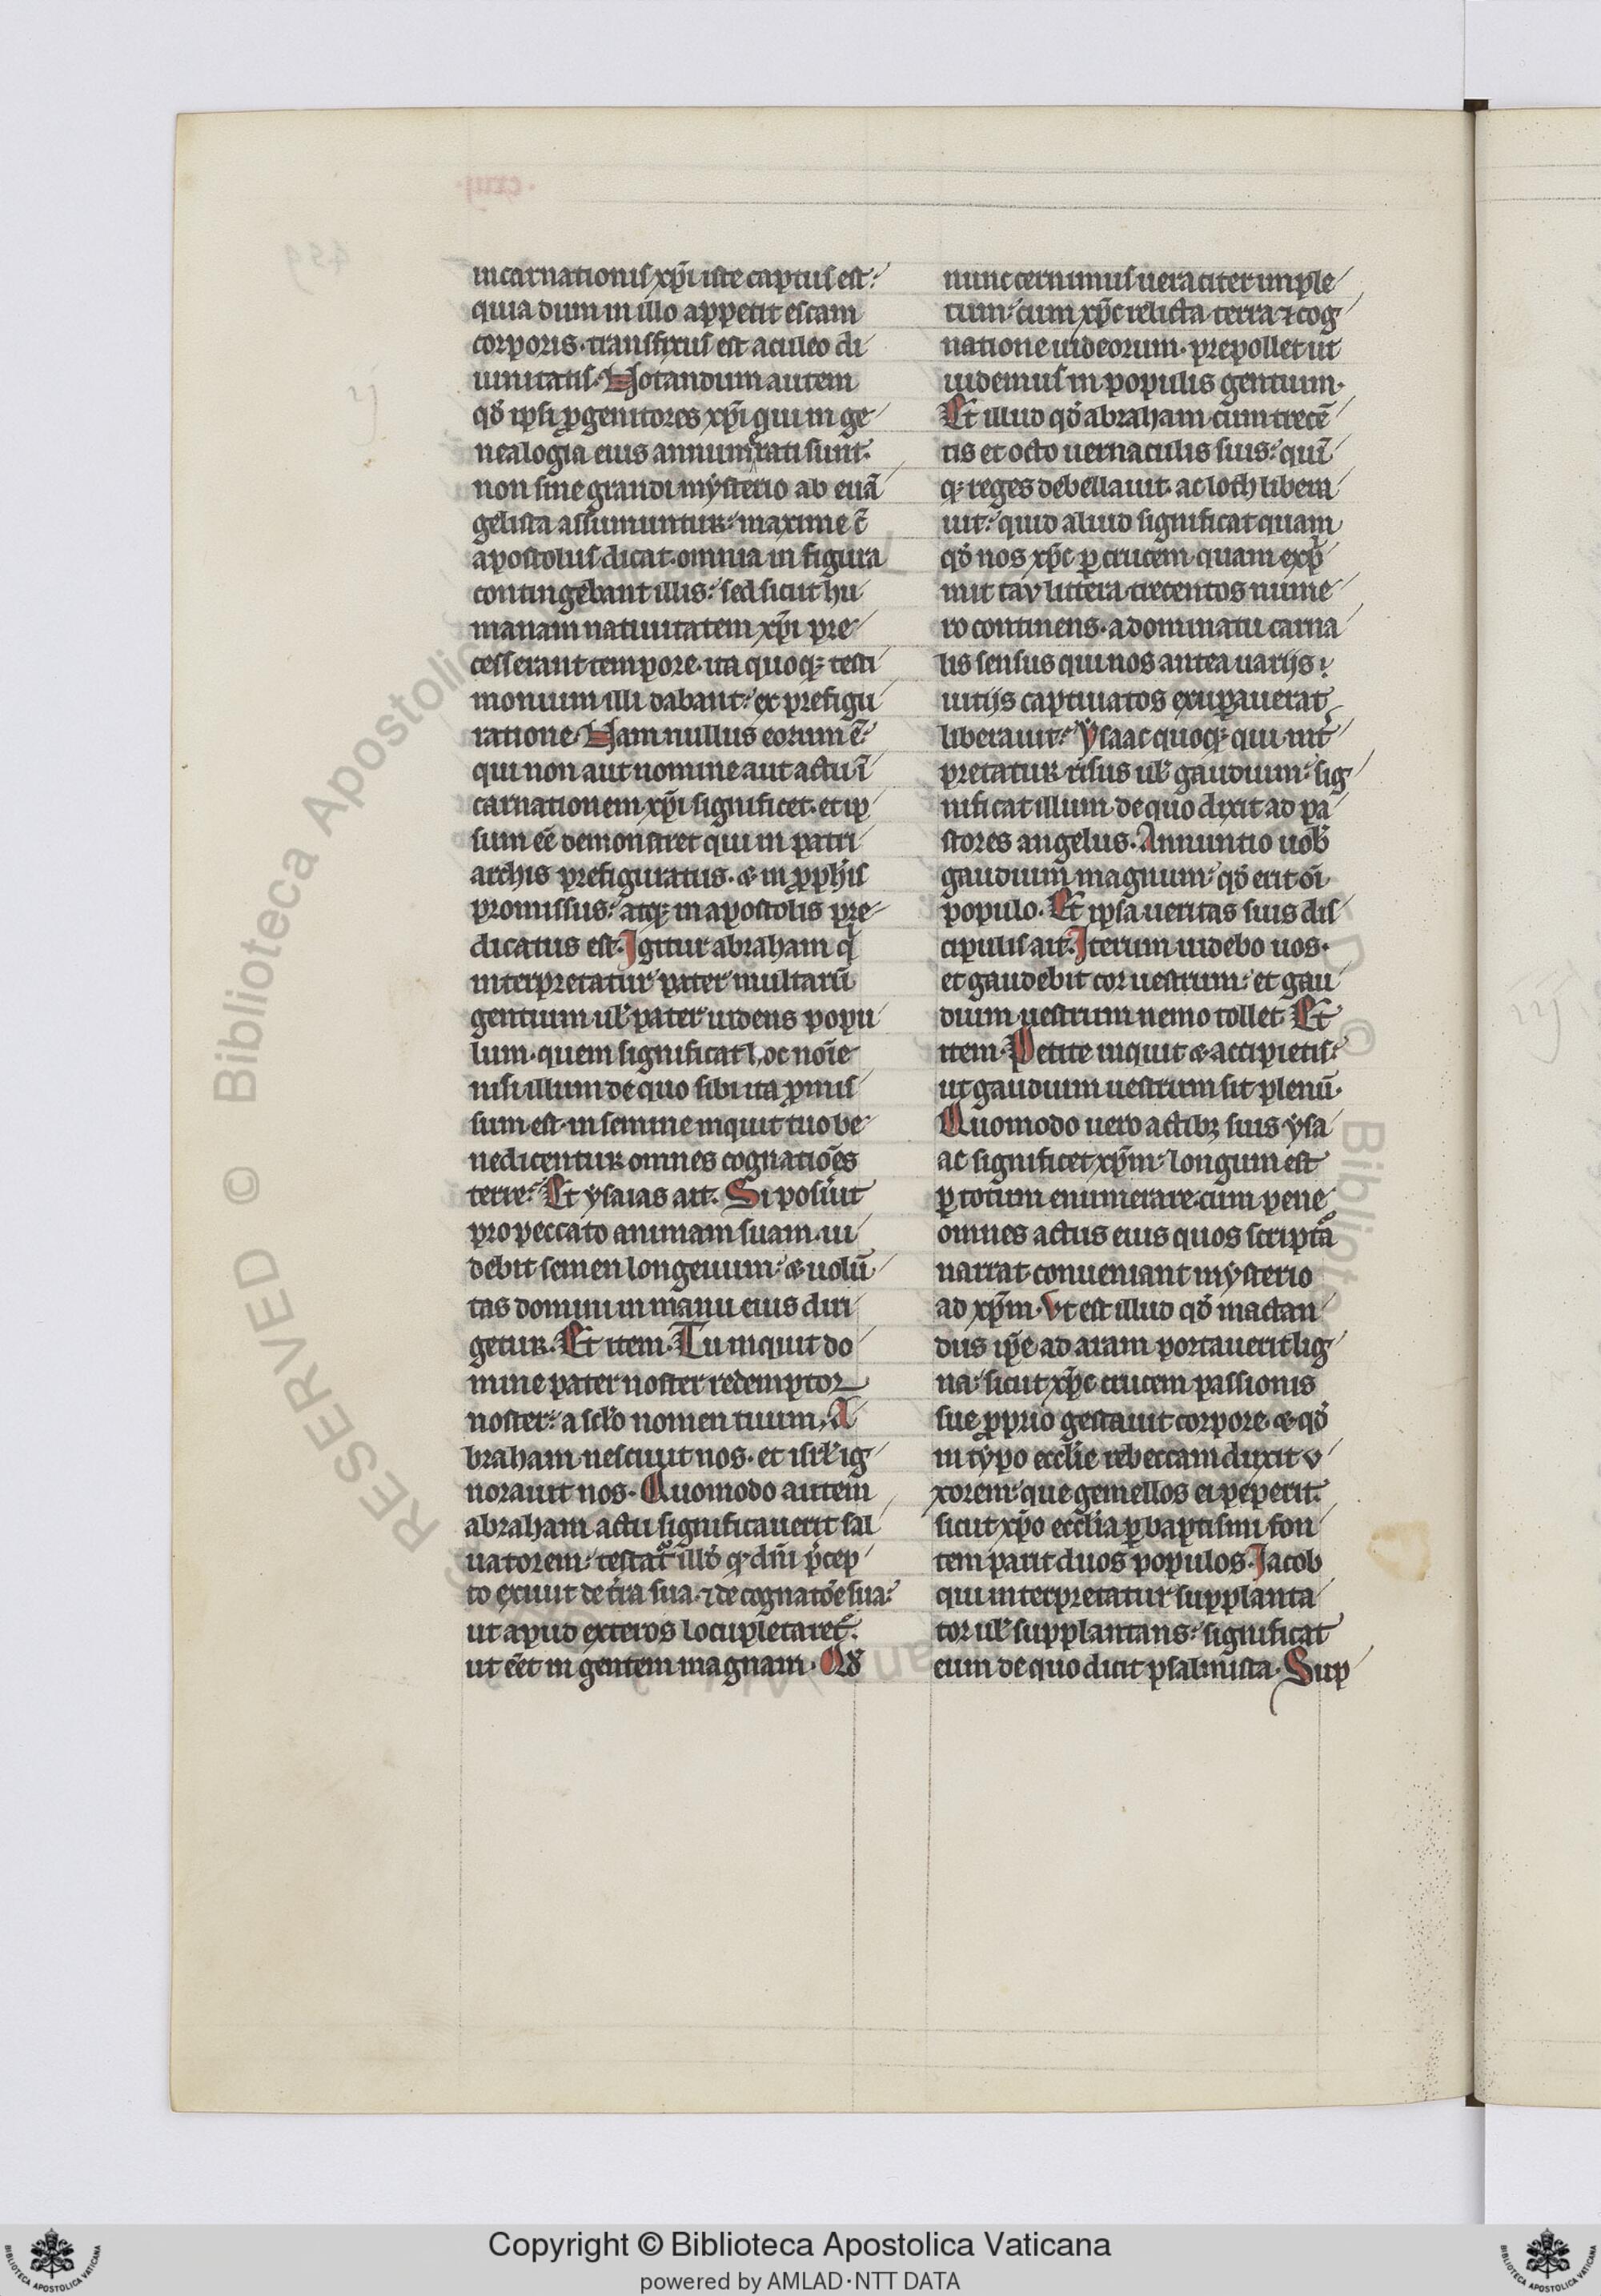 incarnationis xp̄i iste captus est:
quia dum in illo appetit escam
corporis· transfixus est aculeo di
uinitatis. Notandum autem
qd̄ ipsi ꝓgenitores xp̄i qui in ge
nealogia eius annumerati sunt:
non sine grandi mysterio ab euā
gelista assumuntur: maxime c̄
apostolus dicat· omnia in figura
contingebant illis: sed sicut hu
manam natiuitatem xp̄i pre
cesserant tempore· ita quoqꝫ testi
monium illi dabant: ex prefigu
ratione. Nam nullus eorum ē:
qui non aut nomine aut actu ī
carnationem xp̄i significet· et ip
sum eē demonstret qui in patri
archis prefiguratus· & in ꝓph̄is
promissus: atqꝫ in apostolis pre
dicatus est. Igitur abraham q
interpretatur pater multarū
gentium ul̄ pater uidens popu
lum· quem significat hoc noīe
nisi illum de quo sibi ita ꝓmis
sum est· in semine inquit tuo be
nedicentur omnes cognatiōes
terre: Et ysaias ait. Si posuīt
pro peccato animam suam· ui
debit semen longeuum: & uolū
tas domini in manu eius diri
getur. Et item. Tu inquit do
mine pater noster redemptor
noster: a sclo nomen tuum. A
braham nesciuit nos· et isrl̄ ig
norauit nos. Quomodo autem
abraham actu significauerit sal
uatorem: testatᷣ illd̄ qꝫ dn̄i p̄cep
to exiuit de t̄ra sua· ⁊ de cognatōe sua:
ut apud exteros locupletaret᷑:
ut eēt in gentem magnam. Qd̄
nunc cernimus ueraciter imple
tum: cum xp̄c relicta terra ⁊ cog
natione iudeorum· prepollet ut
uidemus in populis gentium.
Et illud qd̄ abraham cum trecē
tis et octo uernaculis suis: quī
qꝫ reges debellauit· ac loth libera
uit: quid aliud significat quam
qd̄ nos xp̄c ꝑ crucem· quam exp̄
mit tav littera trecentos nume
ro continens· a dominatu carna
lis sensus qui nos antea uarijs
uitijs captiuatos exupauerat
liberauit: Ysaac quoqꝫ qui int̄
pretatur risus ul̄ gaudium: sig
nificat illum de quo dixit ad pa
stores angelus. Annuntio uob̄
gaudium magnum: qd̄ erit oī
populo. Et ipsa ueritas suis dis
cipulis ait. Iterum uidebo uos·
et gaudebit cor uestrum: et gau
dium uestrum nemo tollet. Et
item. Petite inquit & accipietis:
ut gaudium uestrum sit plenū.
Quomodo uero actibꝫ suis ysa
ac significet xp̄m: longum est
ꝑ totum enumerare· cum pene
omnes actus eius quos scripta
narrat· conueniant mysterio
ad xp̄m. Vt est illud qd̄ mactan
dus ip̄e ad aram portauerit lig
na: sicut xp̄c crucem passionis
sue ꝓprio gestauit corpore· & qd̄
in typo eccl̄ie rebeccam duxit v
xorem: que gemellos ei peperit:
sicut xp̄o eccl̄ia ꝑ baptismi fon
tem parit duos populos. Iacob
qui interpretatur supplanta
tor ul̄ supplantans: significat
eum de quo dicit psalmista. Sup
Copyright © Biblioteca Apostolica Vaticana
powered by AMLAD·NTT DATA